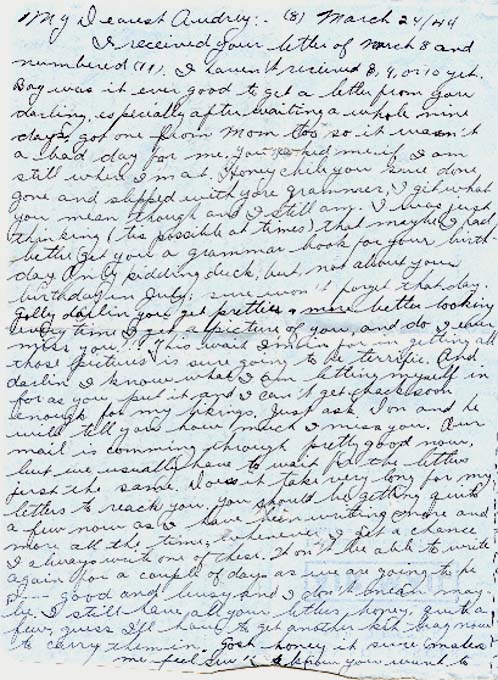 My Dearest Audrey:. (8) March 24/44
I received your letter of March 8 and
numbered (11). I haven't recieved 8, 9, or 10 yet.
Boy was it ever good to get a letter from you
darling, especially after waiting a whole nine
days, got one from Mom too so it wasn't
a bad day for me. You asked me if I am
still where I'm at. Honey chile you sure done
gone and slipped with yore grammer, I git what
you mean though and I still am. I was just
thinking ('tis possible at times) that maybe I had
better get you a grammar book for your birth
day. Only kidding duck, but not about your
birthday in July, sure won't forget that day.
Golly darlin you get prettier & more better looking
every time I get a picture of you, and do I ever
miss you!! This wait I'm in for on getting all
those pictures is sure going to be terrific. And
darlin I know what I am letting myself in
for as you put it and I can't get back soon
enough for my likings. Just ask Don and he
will tell you how much I miss you. Our
mail is comming through pretty good now,
but we usually have to wait for the letters
just the same. Does it take very long for my
letters to reach you, you should be getting quite
a few now as I have been writing more and
more all the time, whenever I get a chance
I always write one of these. I won't be able to write
again for a couple of days as we are going to be
good and busy and I don't mean may-
be. I still have all your letters honey, quite a
few, guess I'll have to get another kit bag now
to carry them in. Gosh honey it sure makes
me feel to know you want to